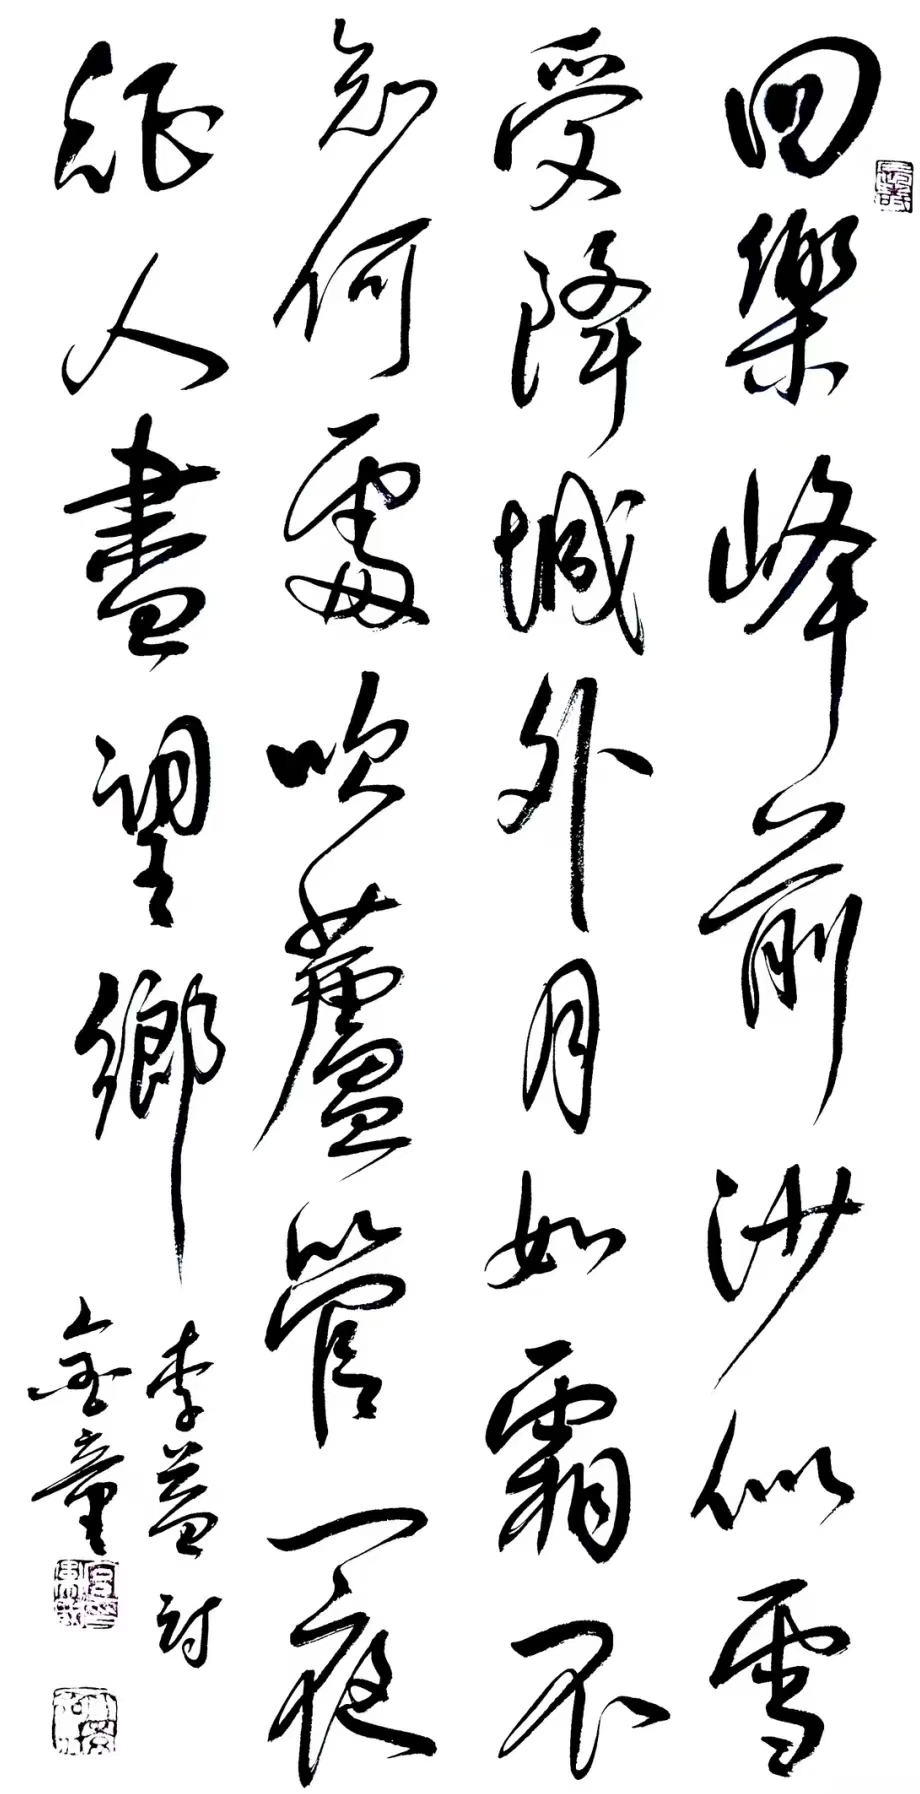 回樂峰前沙似雪
受降城外月如霜不
知何處吹蘆管一夜
征人盡望鄉
李益詩
金童